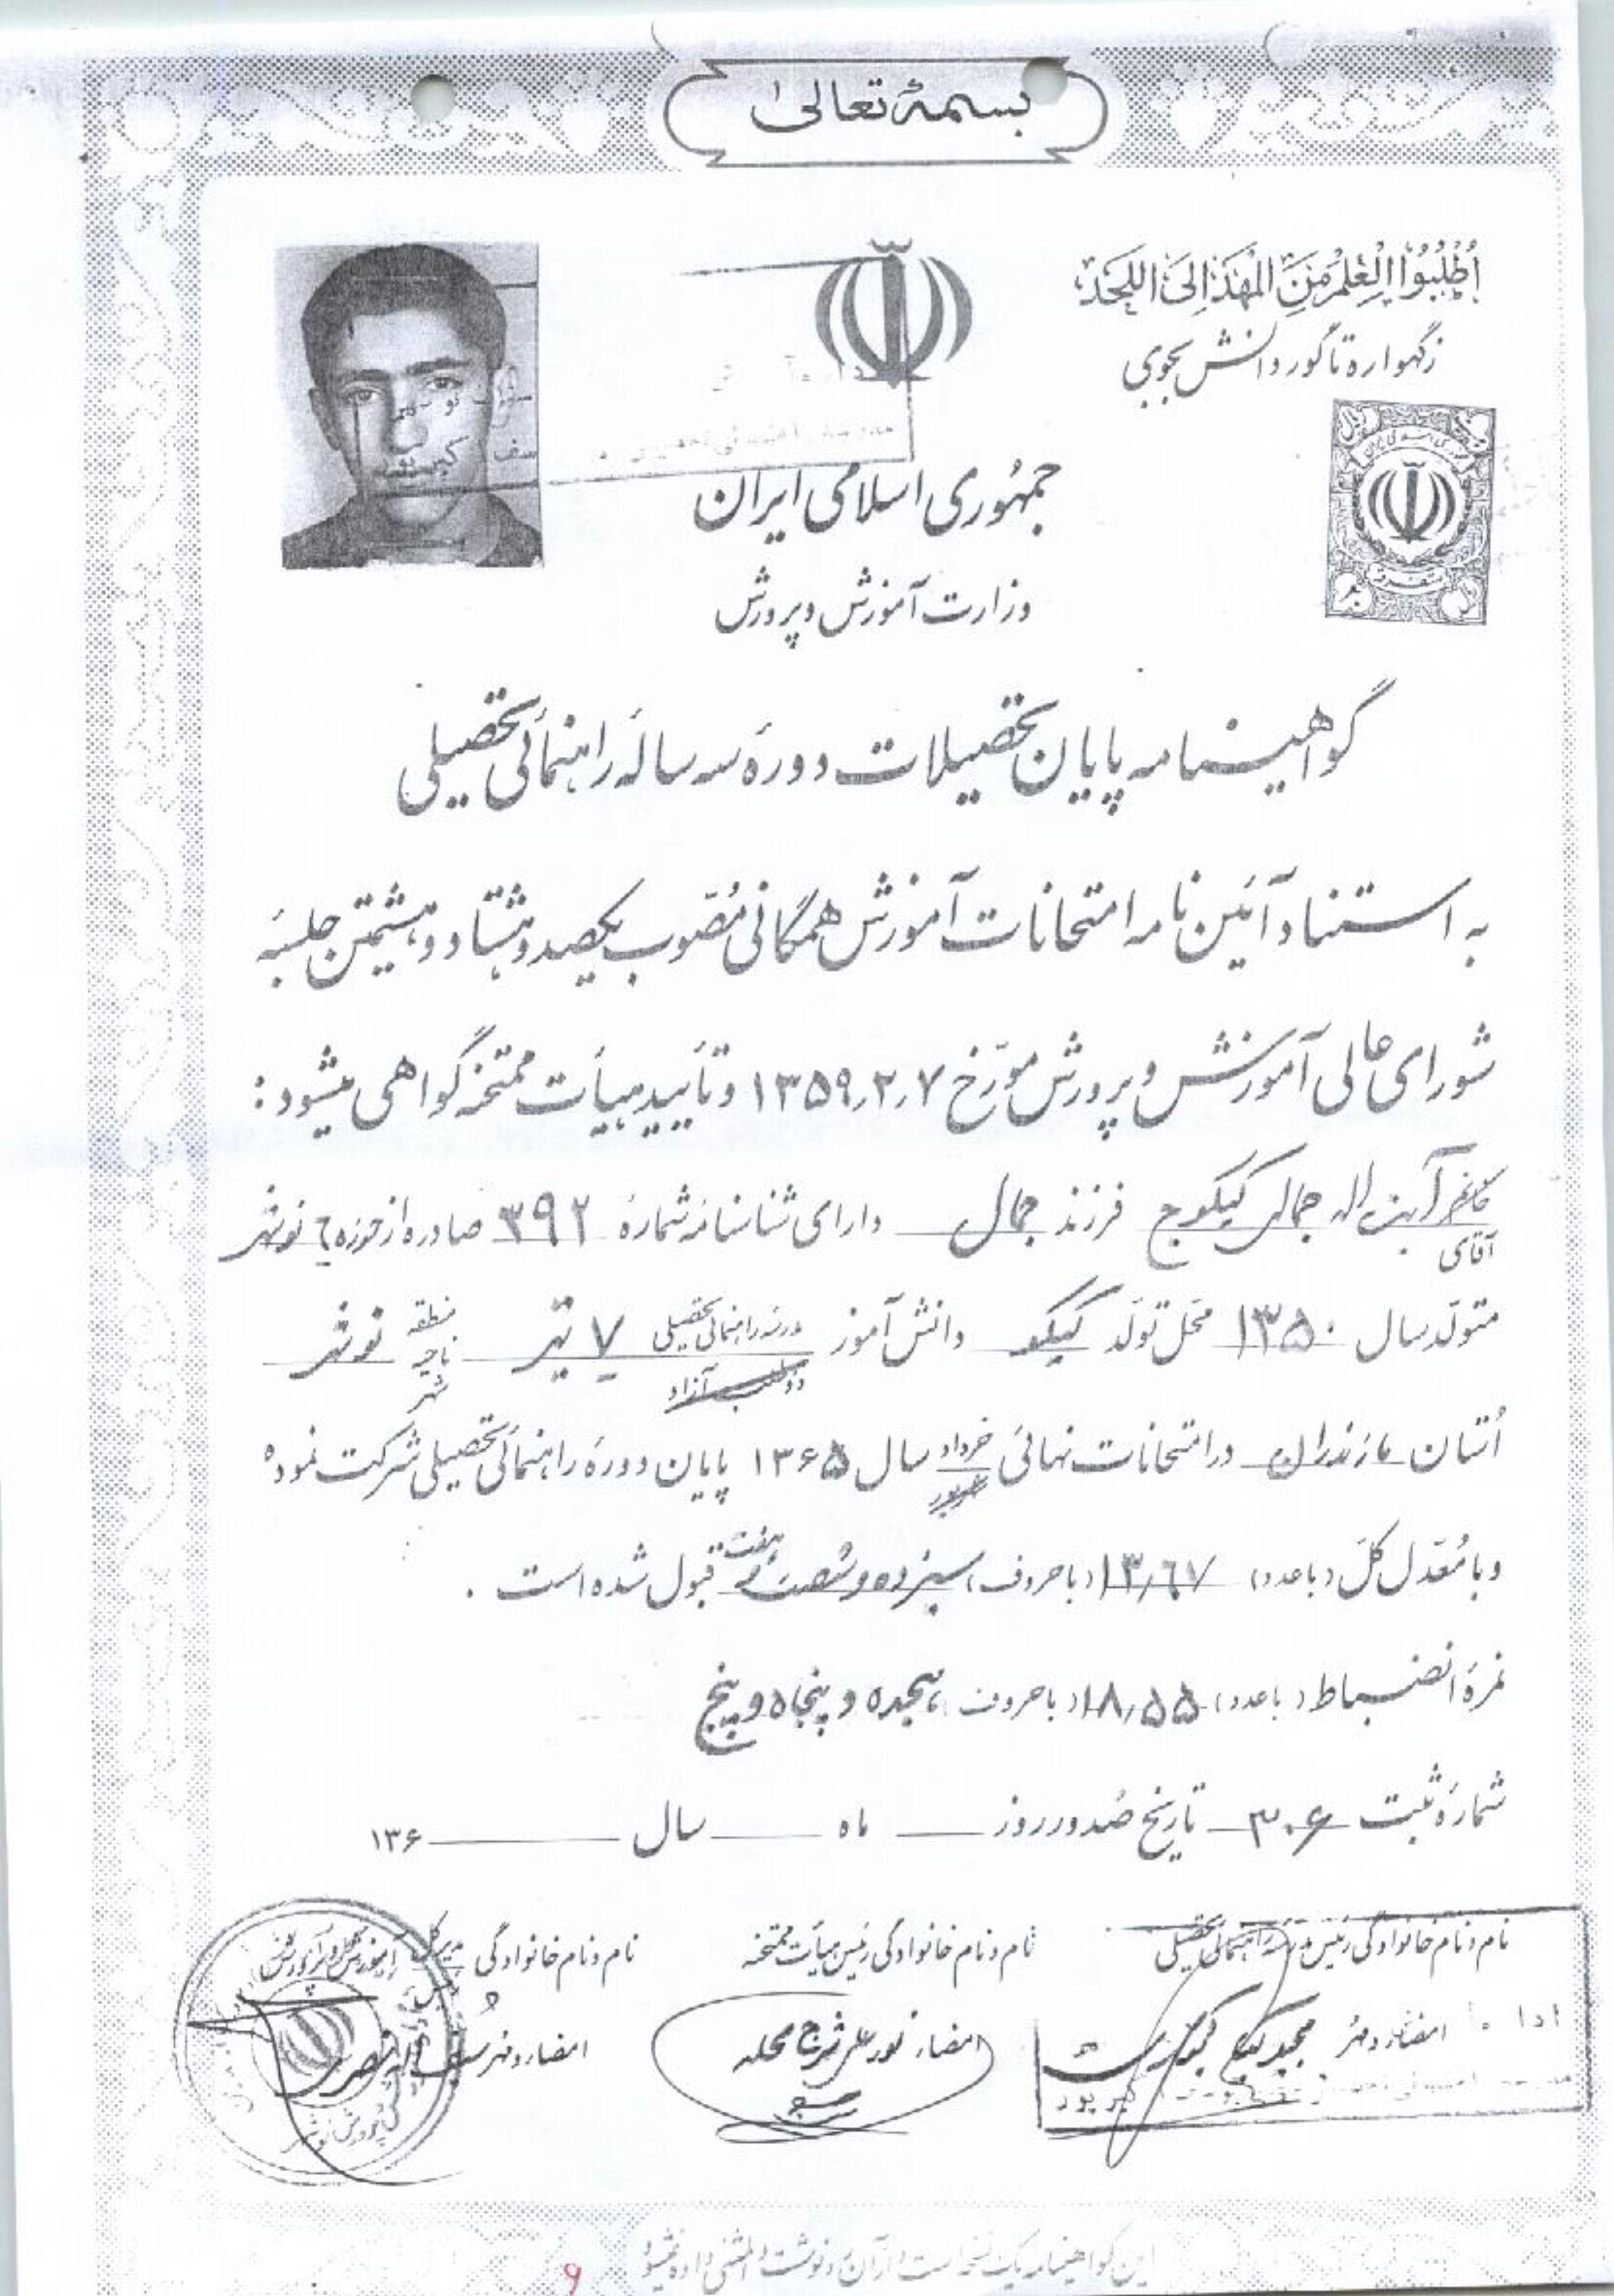 بسمه تعالی
اُطْلُبُوا الْعِلْمَ مِنَ الْمَهْدِ اِلَی اللَّحَدْ
زگهواره تا گور دانش بجوی
جمهوری اسلامی ایران
وزارت آموزش و پرورش
گواهینامه پایان تحصیلات دورهٔ سه سالهٔ راهنمائی تحصیلی
به استناد آئین نامه امتحانات آموزش همگانی مُصّوب یکصد و هشتاد و هشتمین جلسهٔ
شورای عالی آموزش و پرورش مورّخ ۱۳۵۹٫۲٫۷ و تأیید هیأت ممتحنه گواهی میشود :
خانم آیت اله جمالی کیکوج فرزند جمال دارای شناسنامه شمارهٔ ۳۹۲ صادره از حوزه ۶ نوشهر
آقای
متولّد سال ۱۳۵۰ محل تولّد کیکو دانش آموز مدرسه راهنمائی تحصیلی ۷ تیر منطقه نوشهر
داوطلب آزاد ناحیه
شهر
اُستان مازندران در امتحانات نهائی خرداد سال ۱۳۶۵ پایان دورهٔ راهنمائی تحصیلی شرکت نموده
شهریور
و با مُعّدل کلّ (با عدد) ۱۳٫۶۷ (با حروف) سیزده و شصت و هفت قبول شده است .
نمرهٔ انضباط (با عدد) ۱۸٫۵۵ (با حروف) هیجده و پنجاه و پنج
شمارهٔ ثبت ۳۰۶ تاریخ صُدور روز ماه سال ۱۳۶
نام و نام خانوادگی رئیس مدرسه راهنمائی تحصیلی
نام و نام خانوادگی رئیس هیأت ممتحنه
نام و نام خانوادگی مدیر کل آموزش و پرورش
رئیس
امضاء و مُهر مجید
امضاء نورعلی محله
امضاء و مُهر
این گواهینامه یک نسخه است و از آن رونوشت و المثنی داده نمیشود
۶